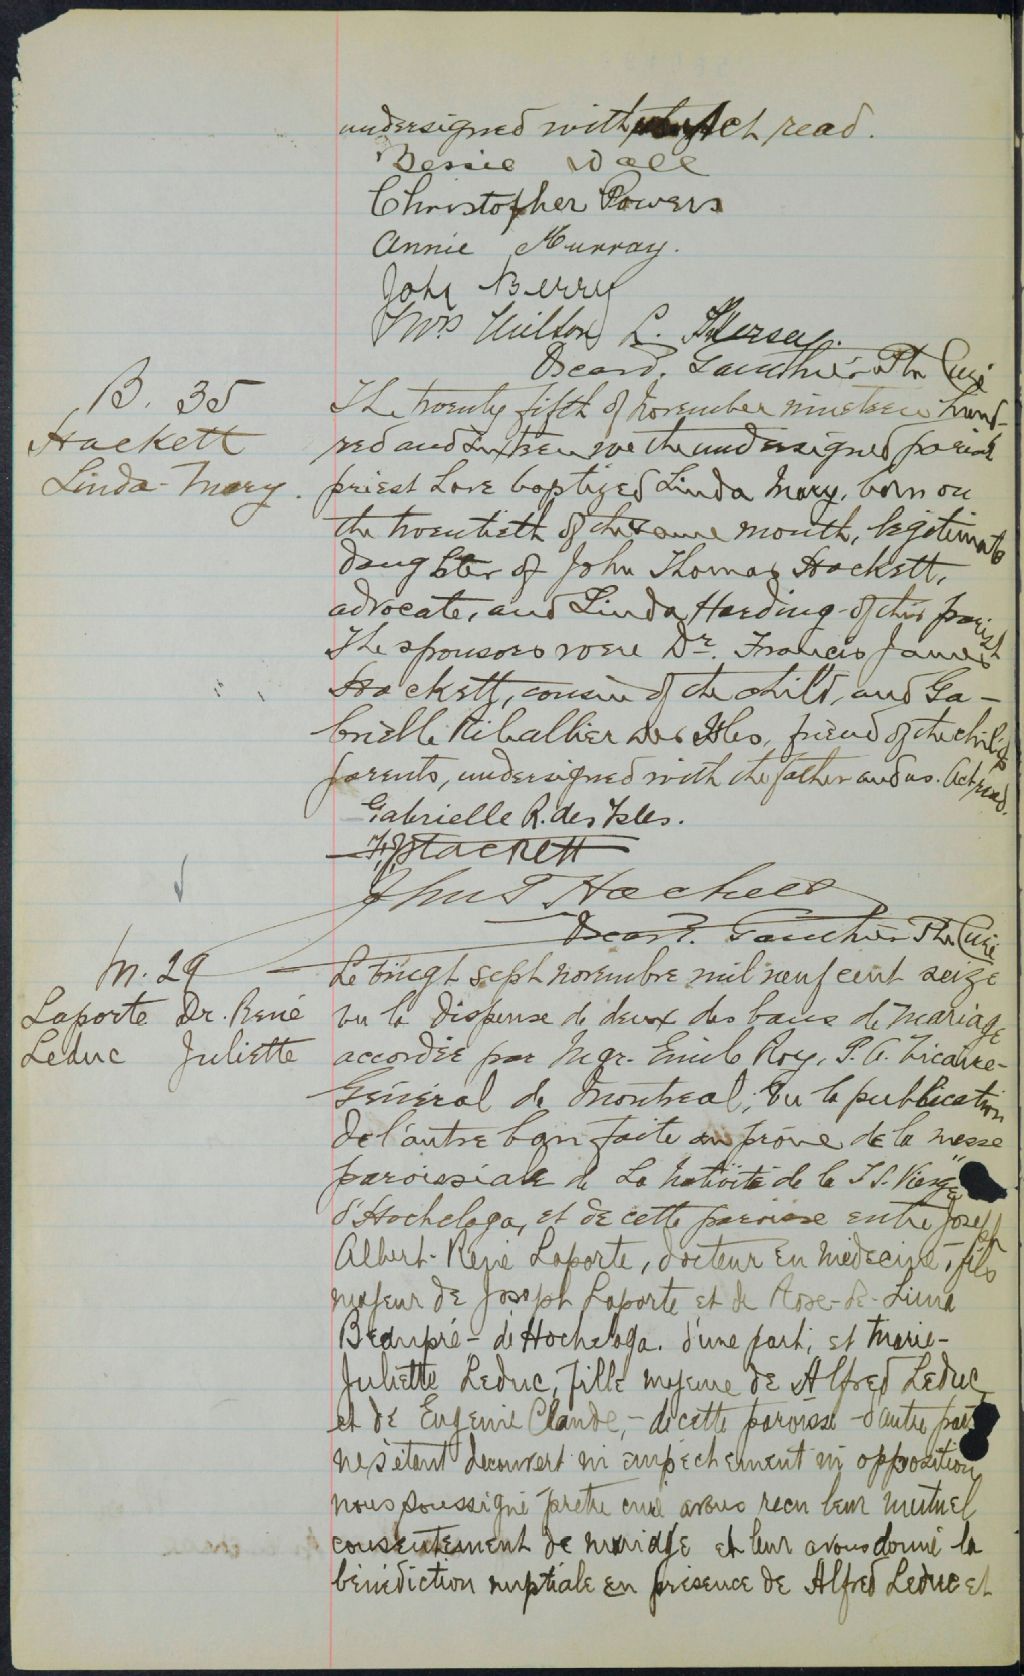 undersigned with Act read.
Bessie Wall
Christopher Powers
Annie Murray.
John Berry
Mrs Wilson L.
Oscar. Gauthier Ptr Curé
B. 35
Hackett
Linda-Mary.
The twenty fifth of November nineteen hund-
red and sixteen we the undersigned parish
priest have baptized Linda Mary, born on
the twentieth of the same month, legitimate
daughter of John Thomas Hackett,
advocate, and Linda Harding of this parish
The sponsors were Dr. Francis James
Hackett, cousin of the child, and Ga-
brielle Riballier des Isles, friend of the child's
parents, undersigned with the father and us. Act read.
Gabrielle R. des Isles.
F.J. Hackett
John T Hackett
Oscar. Gauthier Ptr Curé
M. 29
Laporte Dr. René
Leduc Juliette
Le vingt sept novembre mil neuf cent seize
vu la dispense de deux des bans de mariage
accordée par Mgr. Emile Roy, P.A. Vicaire-
Général de Montreal, vu la publication
de l'autre ban faite au prône de la messe
paroissiale de La Nativité de la T.S. Vierge
d'Hochelaga, et de cette paroisse entre Joseph
Albert-René Laporte, docteur en médecine, fils
majeur de Joseph Laporte et de Rose-de-Lima
Beaupré - de Hochelaga. d'une part, et Marie-
Juliette Leduc, fille majeure de Alfred Leduc
et de Eugenie Claude, - de cette paroisse - d'autre part
ne s'étant decouvert ni empêchement ni opposition
nous soussigné prêtre curé avons recu leur mutuel
consentement de mariage et leur avons donné la
bénédiction nuptiale en présence de Alfred Leduc et